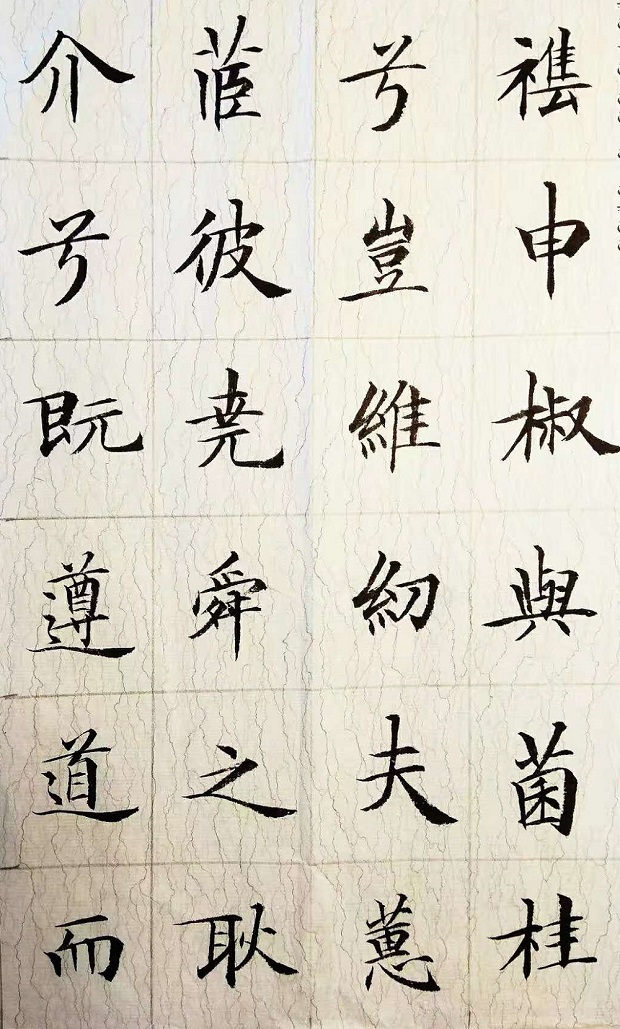 襍申椒與菌桂
兮豈維紉夫蕙
茝彼尭舜之耿
介兮既遵道而